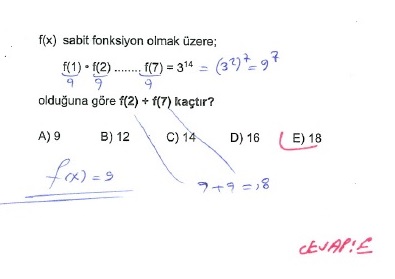 f(x) sabit fonksiyon olmak üzere;
f(1) • f(2) ........ f(7) = 3¹⁴ = (3²)⁷ = 9⁷
9 9 9
olduğuna göre f(2) + f(7) kaçtır?
A) 9 B) 12 C) 14 D) 16 E) 18
f(x) = 9
9+9=18
CEVAP: E